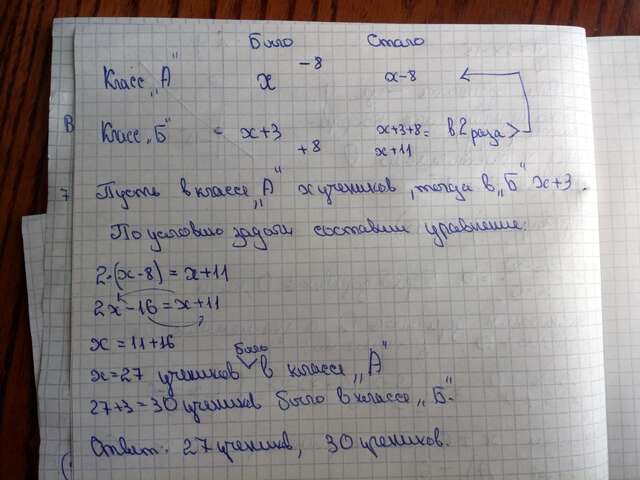 Было Стало
Класс „А" x - 8 x-8
Класс „Б" = x+3 +8 x+3+8= в 2 раза >
x+11
Пусть в классе „А" x учеников, тогда в „Б" x+3.
По условию задачи составим уравнение:
2·(x-8)=x+11
2x-16=x+11;
x=11+16
было
x=27 учеников в классе „А"
27+3=30 учеников было в классе „Б".
Ответ: 27 учеников, 30 учеников.
В
7